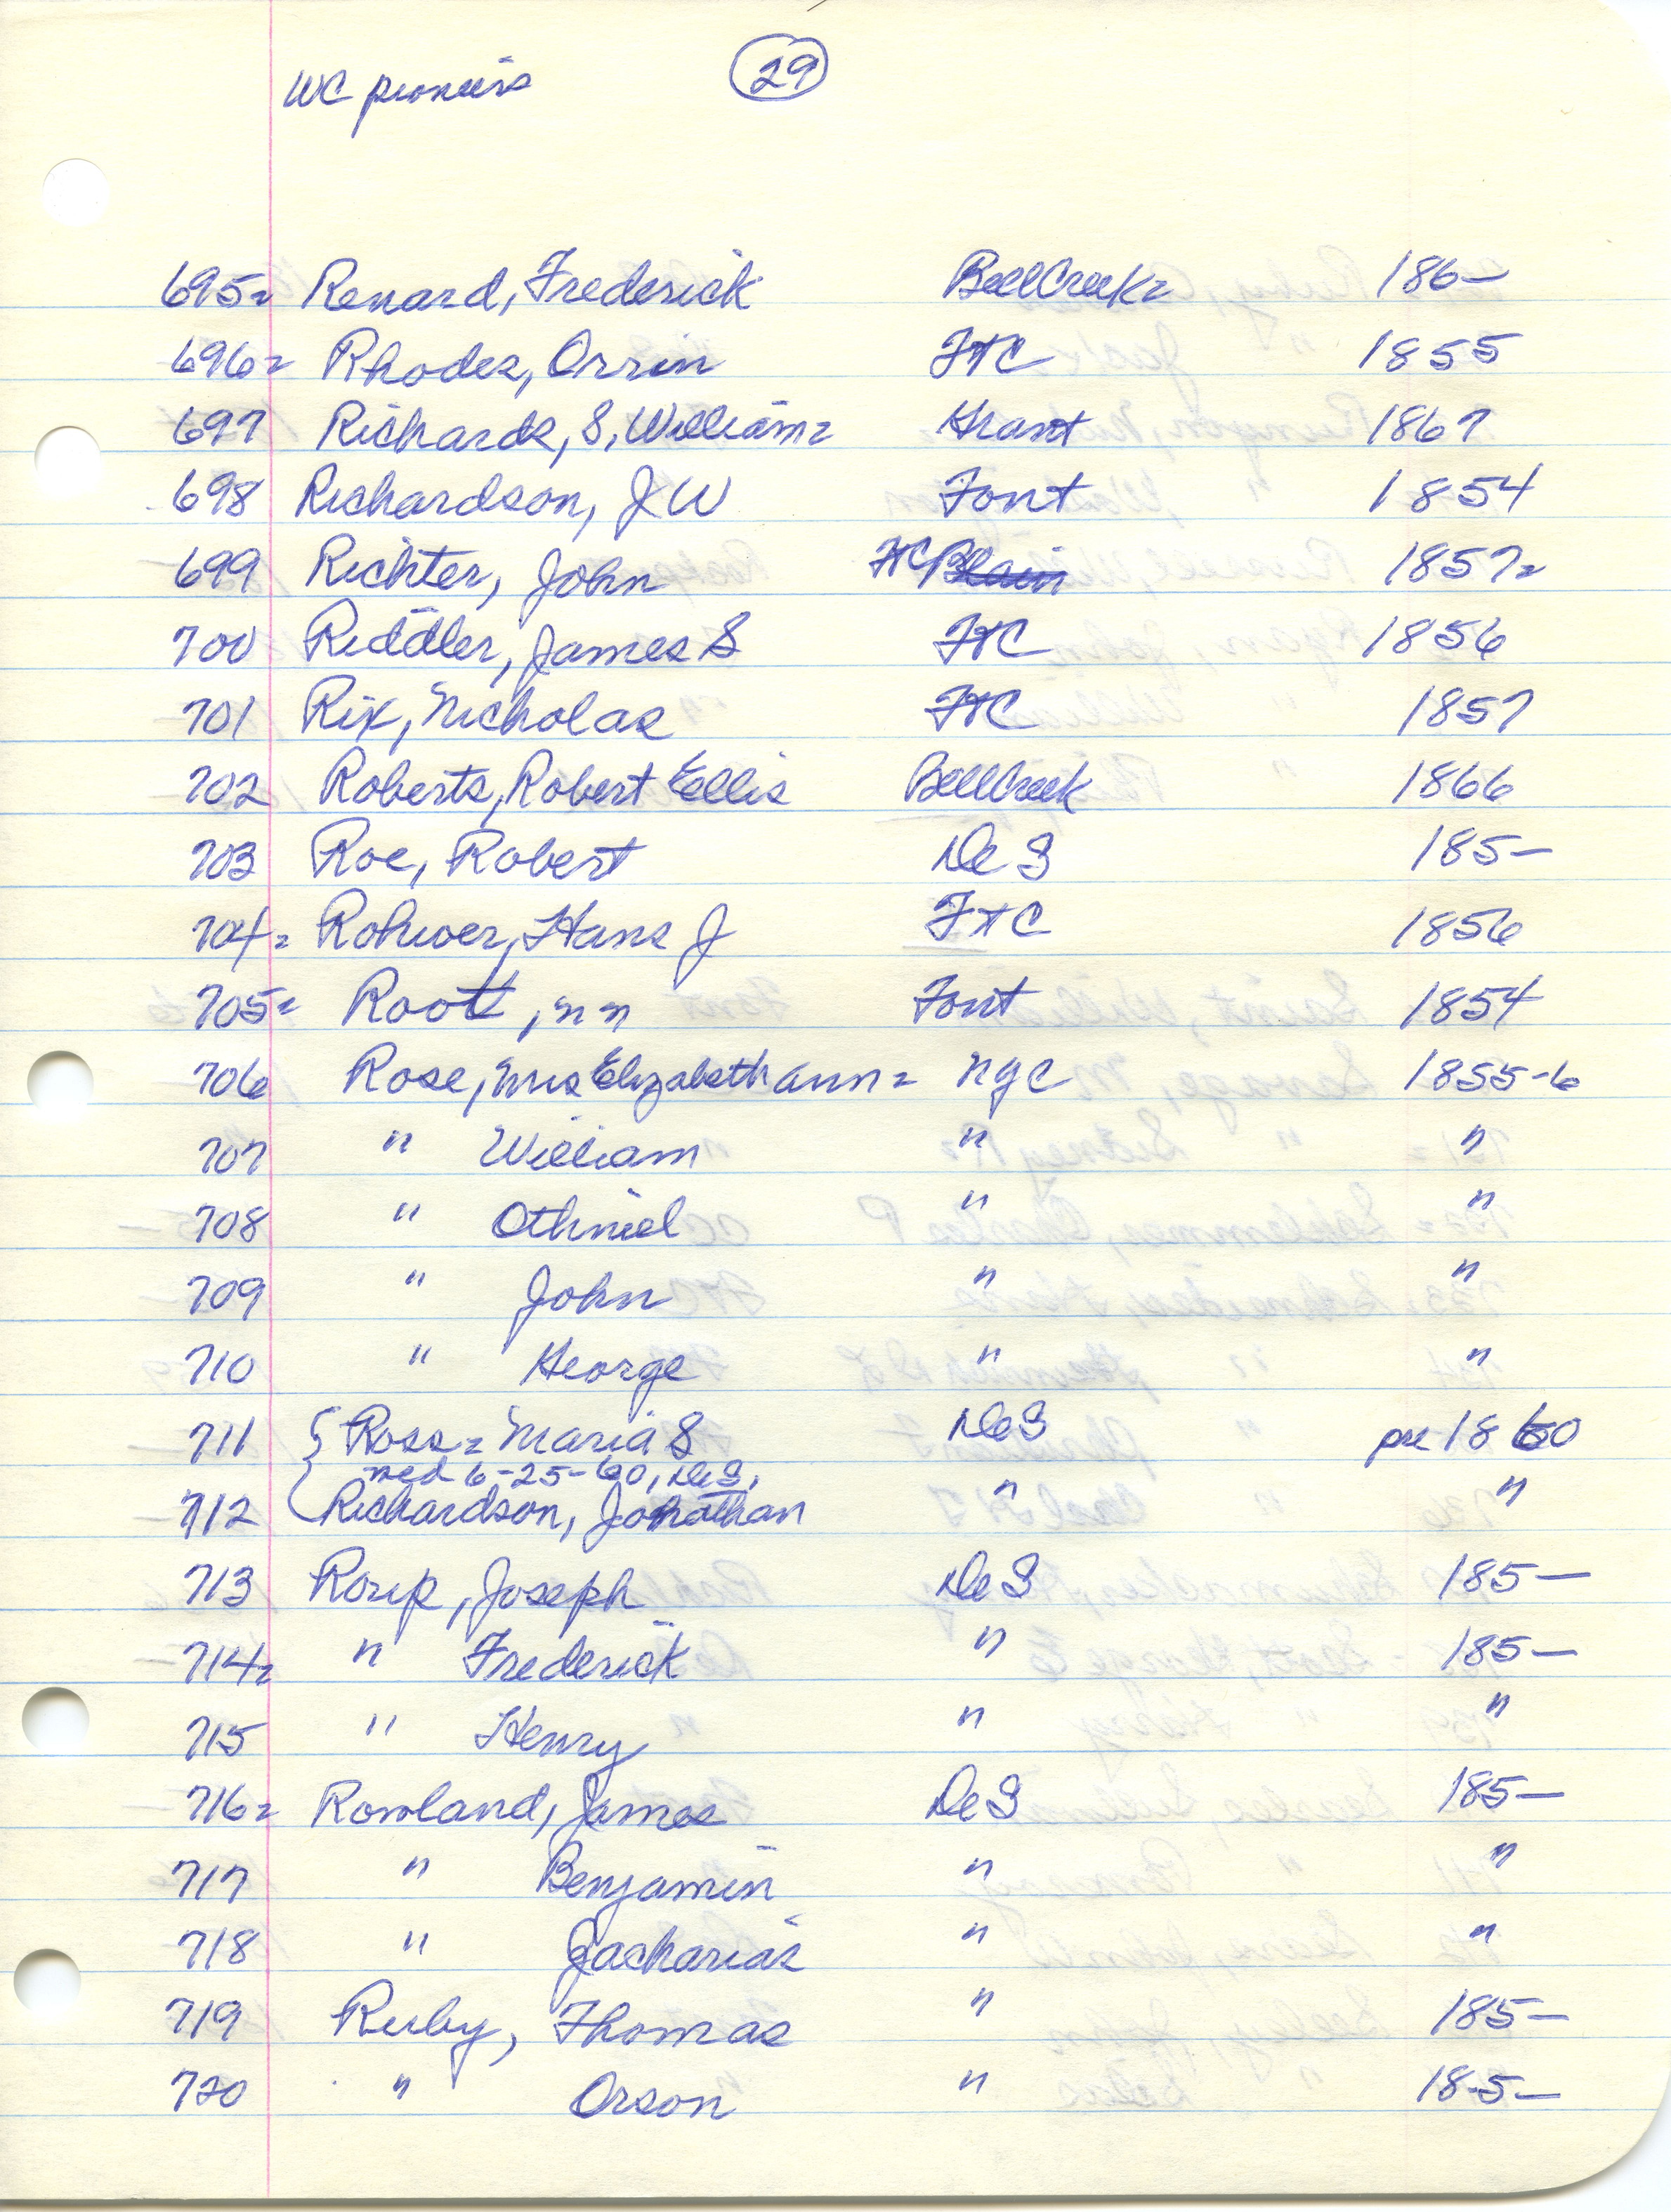 WC pioneers 29
695= Renard, Frederick Bell Creek= 186—
696= Rhodes, Orrin FTC 1855
697 Richards, S, William= Grant 1867
698 Richardson, J W Font 1854
699 Richter, John FTC Blain 1857=
700 Riddler, James S FTC 1856
701 Rix, Nicholas FTC 1857
702 Roberts, Robert Ellis Bell Creek 1866
703 Roe, Robert De S 185—
704= Rohwer, Hans J FTC 1856
705= Root, nn Font 1854
706 Rose, Mrs Elizabeth Ann= NYC 1855-6
707 " William " "
708 " Othniel " "
709 " John " "
710 " George " "
711 { Ross= Maria S De S pre 1860
med 6-25-60, De S,
712 Richardson, Jonathan " "
713 Rosip, Joseph De S 185—
714= " Frederick " 185—
715 " Henry " "
716= Rowland, James De S 185—
717 " Benjamin " "
718 " Zacharias " "
719 Ruby, Thomas " 185—
720 " Orson " 185—